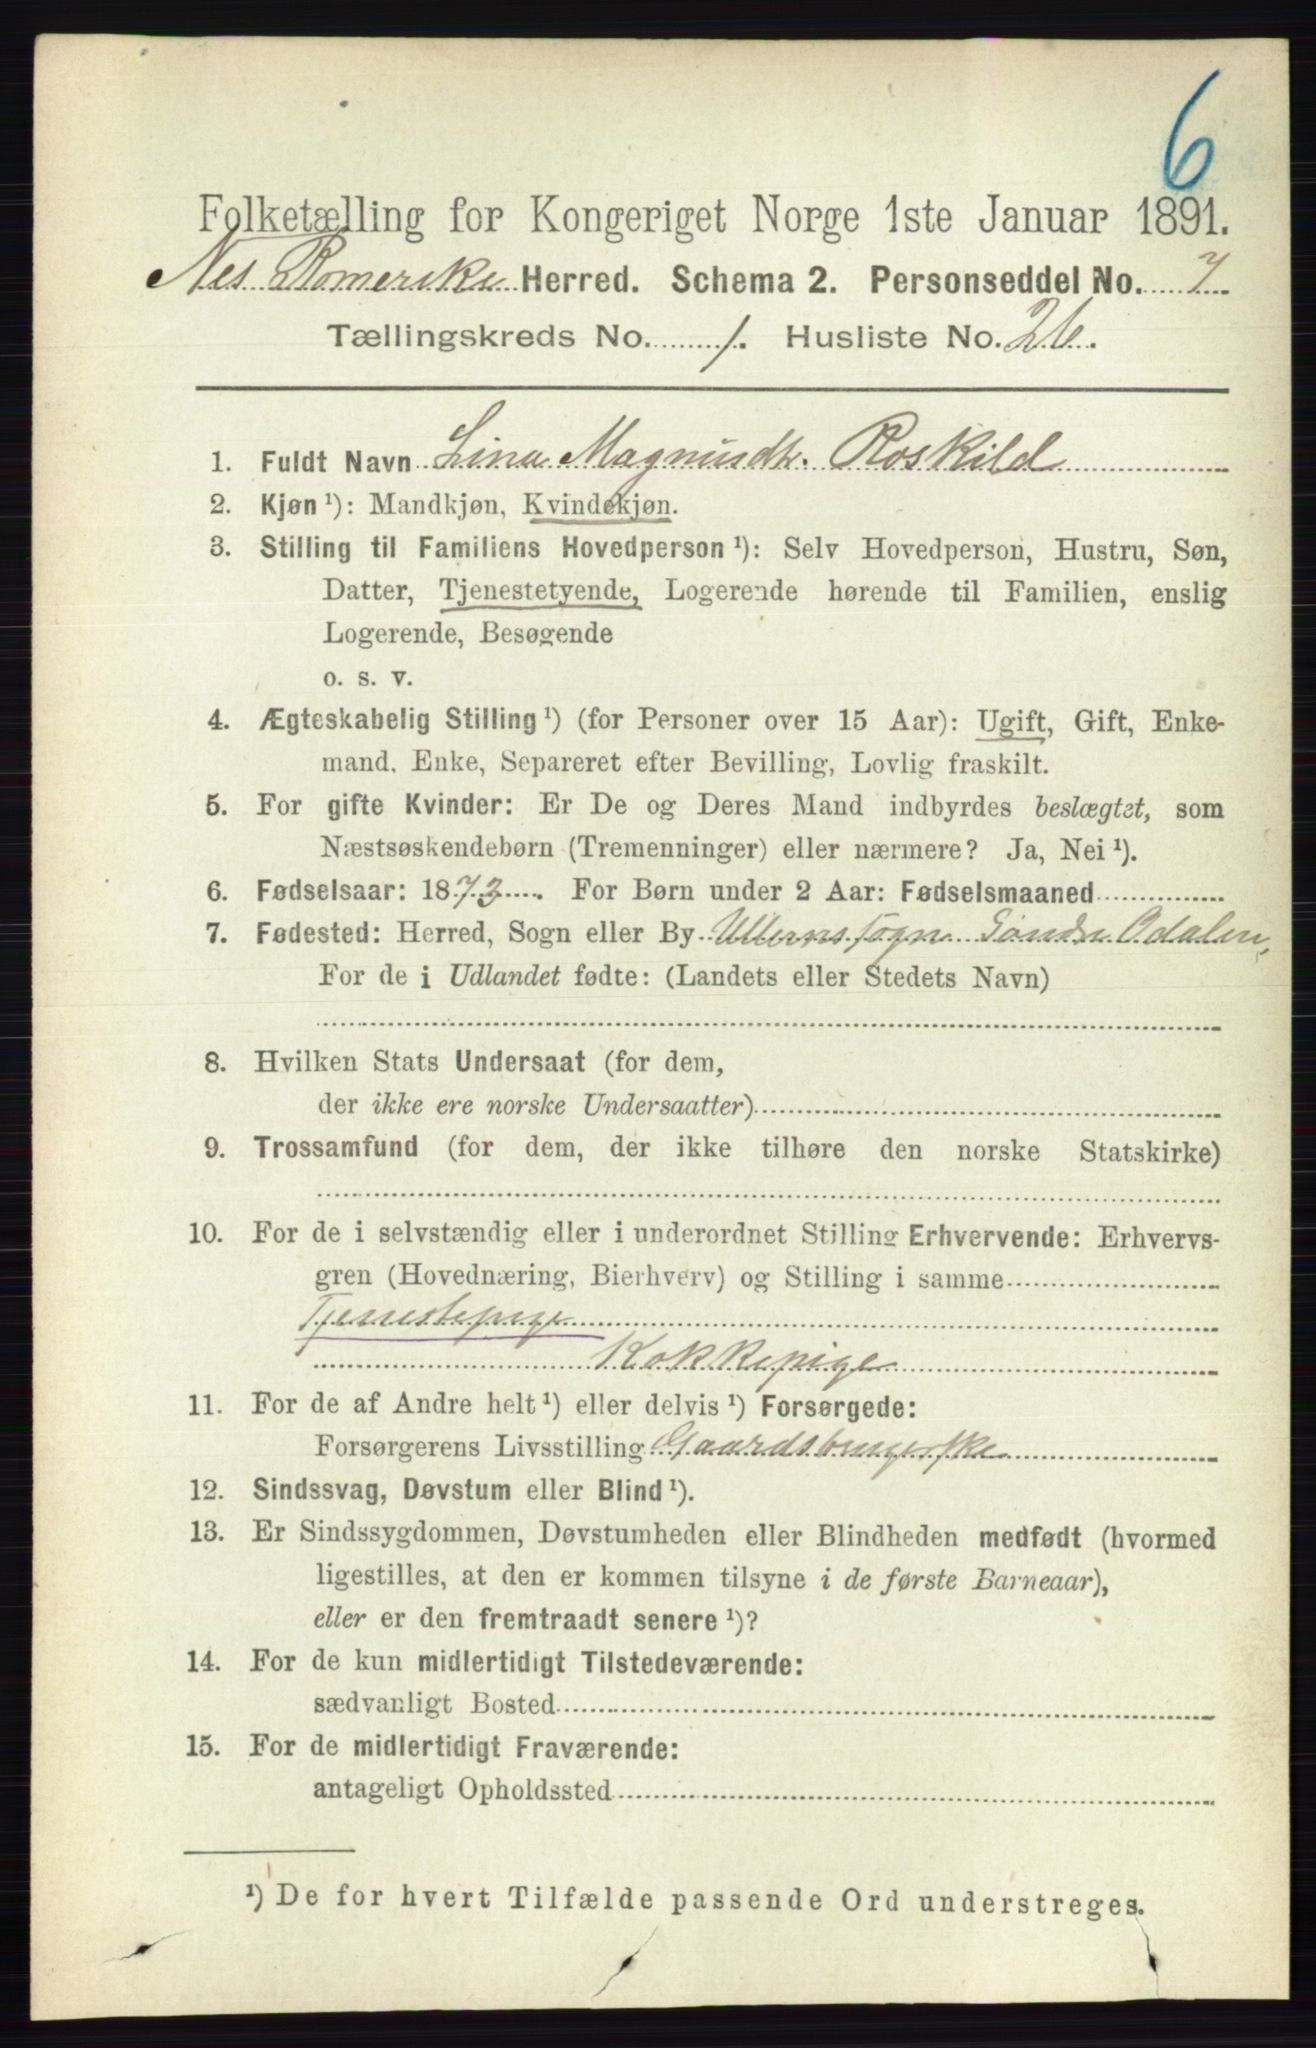 6
Folketælling for Kongeriget Norge 1ste Januar 1891.
Nes Romerike Herred. Schema 2. Personseddel No. 7
Tællingskreds No. 1. Husliste No. 26.
1. Fuldt Navn Lina Magnusdtr. Roskild
2. Kjøn ¹): Mandkjøn, Kvindekjøn.
3. Stilling til Familiens Hovedperson ¹): Selv Hovedperson, Hustru, Søn,
Datter, Tjenestetyende, Logerende hørende til Familien, enslig
Logerende, Besøgende
o. s. v.
4. Ægteskabelig Stilling ¹) (for Personer over 15 Aar): Ugift, Gift, Enke-
mand, Enke, Separeret efter Bevilling, Lovlig fraskilt.
5. For gifte Kvinder: Er De og Deres Mand indbyrdes beslægtet, som
Næstsøskendebørn (Tremenninger) eller nærmere? Ja, Nei ¹).
6. Fødselsaar: 1873. For Børn under 2 Aar: Fødselsmaaned
7. Fødested: Herred, Sogn eller By Ullerns Sogn Søndre Odalen,
For de i Udlandet fødte: (Landets eller Stedets Navn)
8. Hvilken Stats Undersaat (for dem,
der ikke ere norske Undersaatter)
9. Trossamfund (for dem, der ikke tilhøre den norske Statskirke)
10. For de i selvstændig eller i underordnet Stilling Erhvervende: Erhvervs-
gren (Hovednæring, Bierhverv) og Stilling i samme
Tjenestepige
Kokkepige
11. For de af Andre helt ¹) eller delvis ¹) Forsørgede:
Forsørgerens Livsstilling
12. Sindssvag, Døvstum eller Blind ¹).
13. Er Sindssygdommen, Døvstumheden eller Blindheden medfødt (hvormed
ligestilles, at den er kommen tilsyne i de første Barneaar),
eller er den fremtraadt senere ¹)?
14. For de kun midlertidigt Tilstedeværende:
sædvanligt Bosted
15. For de midlertidigt Fraværende:
antageligt Opholdssted
¹) De for hvert Tilfælde passende Ord understreges.